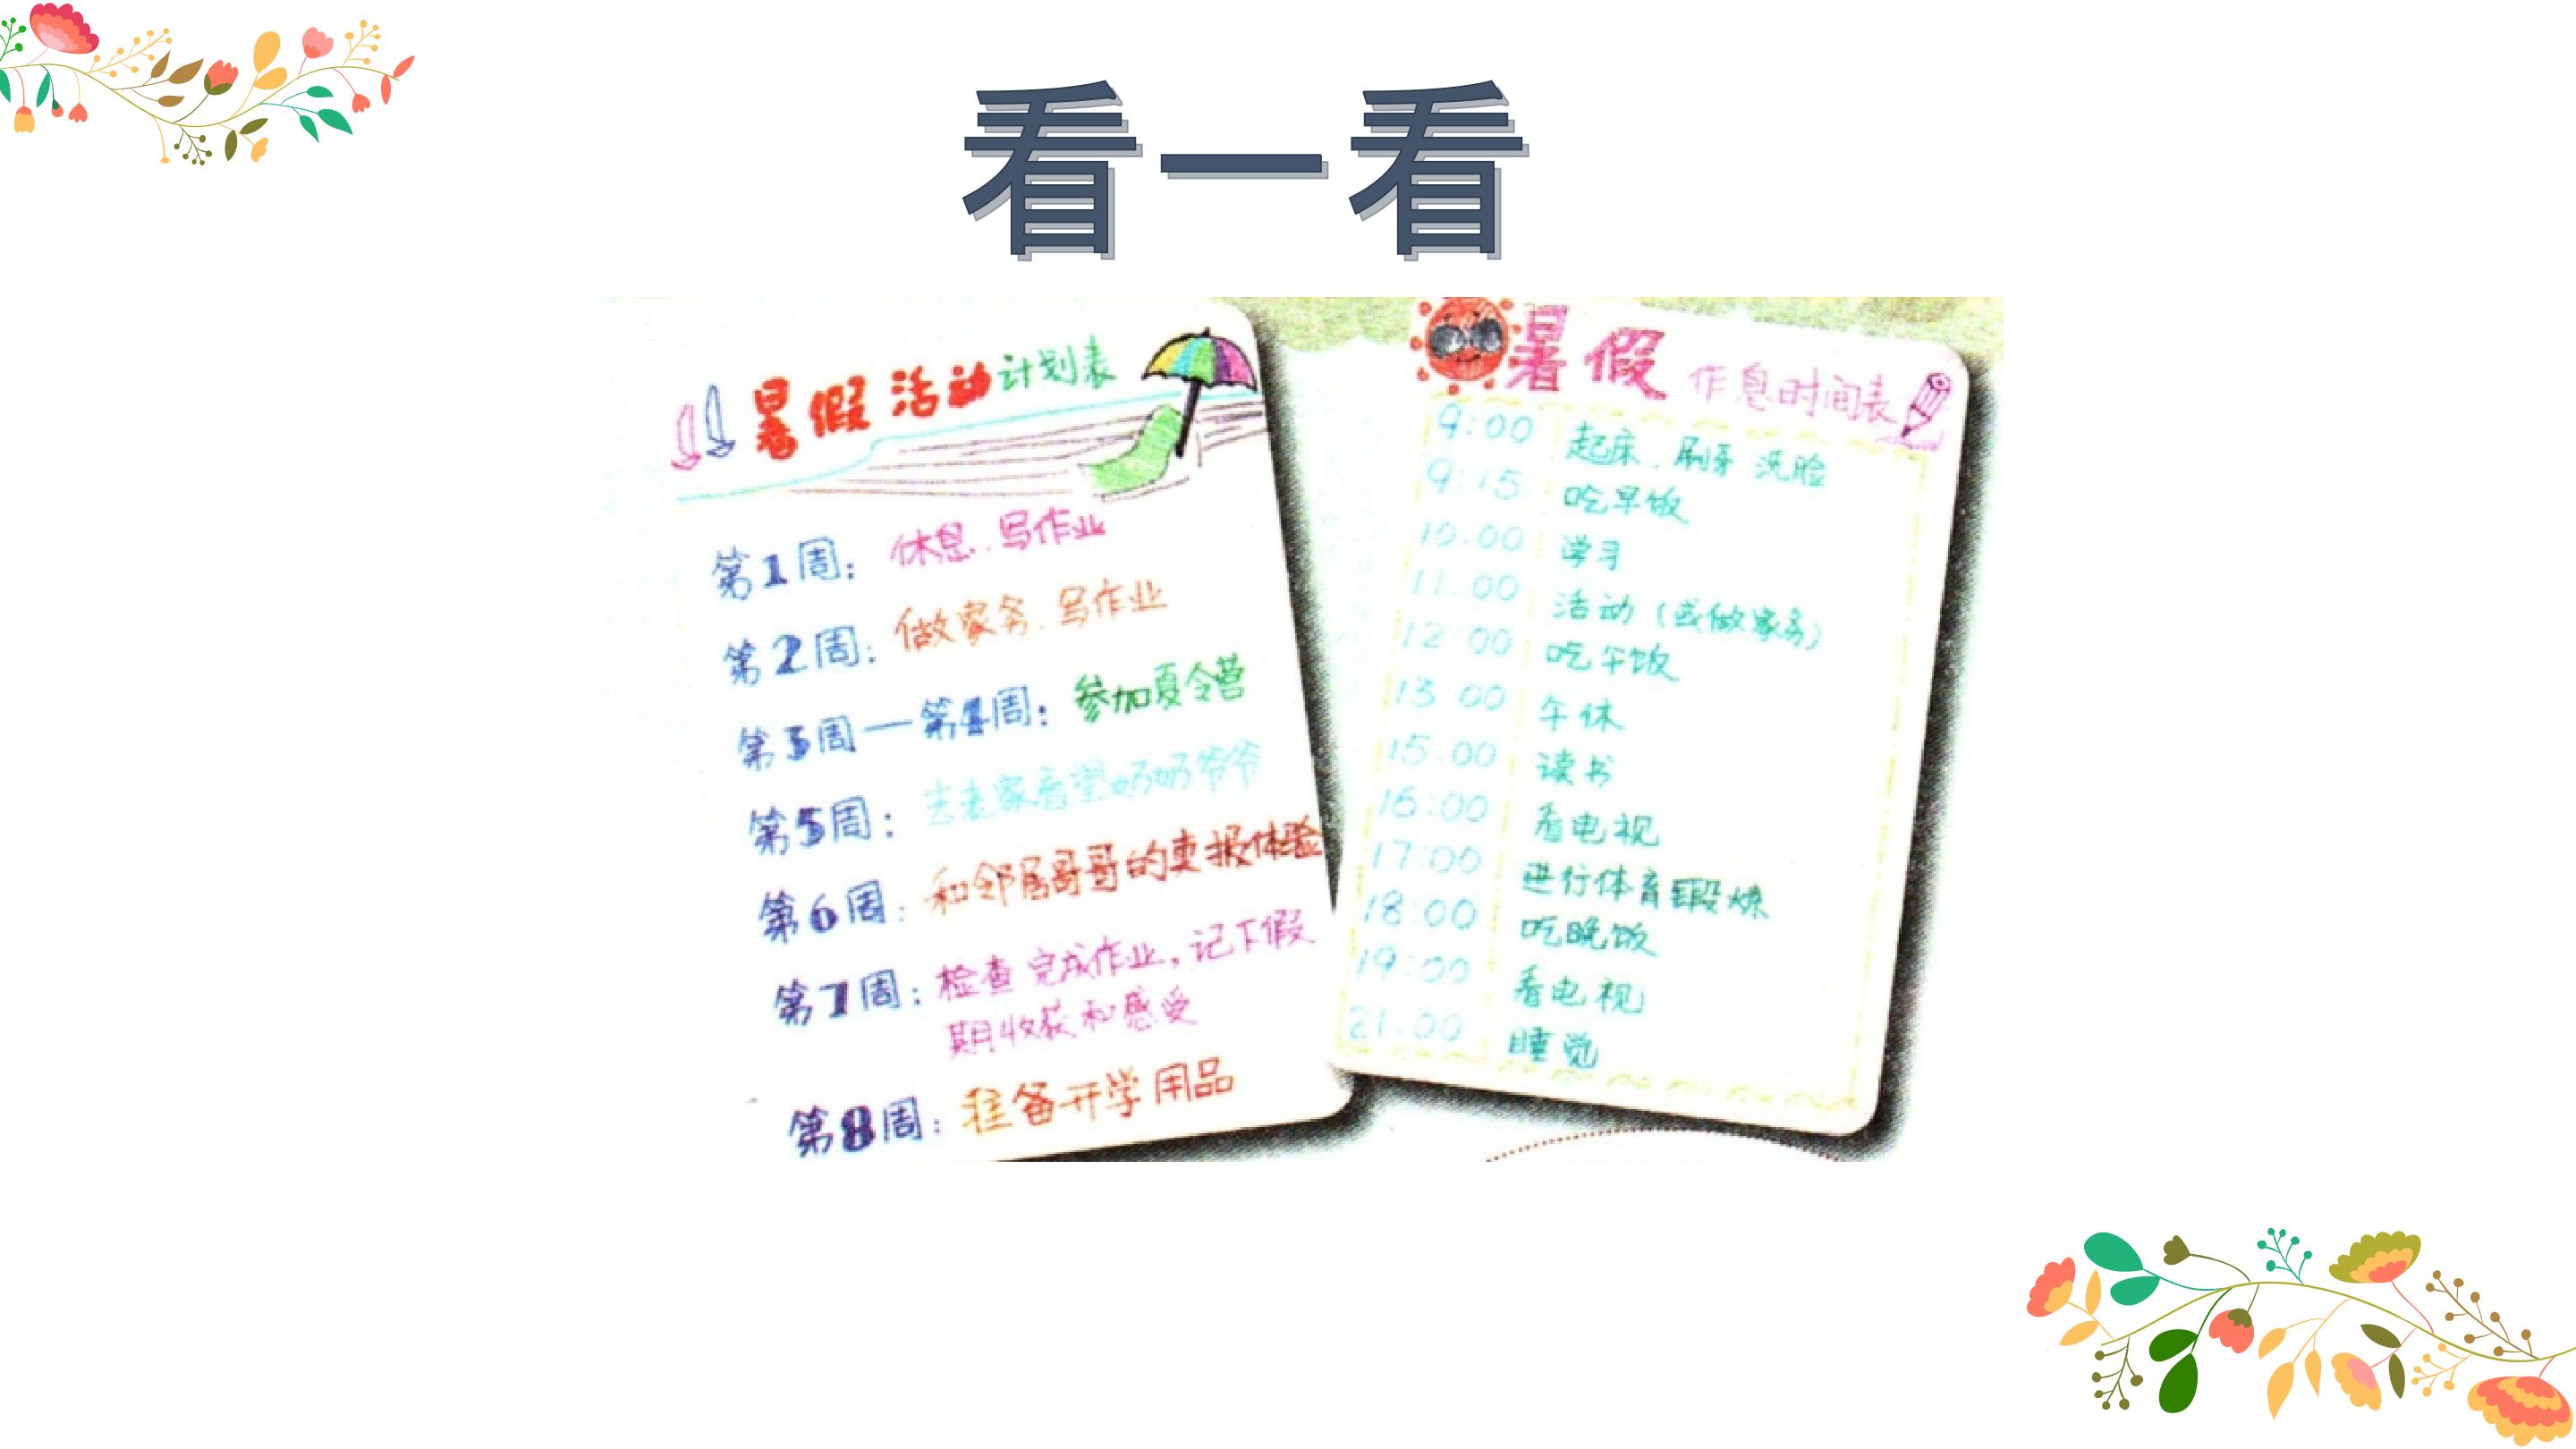 看一看
暑假活动计划表
第1周：休息、写作业
第2周：做家务、写作业
第3周—第4周：参加夏令营
第5周：去老家看望奶奶爷爷
第6周：和邻居哥哥的卖报体验
第7周：检查完成作业，记下假
期收获和感受
第8周：准备开学用品
暑假作息时间表
9:00 起床、刷牙 洗脸
9:15 吃早饭
10:00 学习
11:00 活动（或做家务）
12:00 吃午饭
13:00 午休
15:00 读书
16:00 看电视
17:00 进行体育锻炼
18:00 吃晚饭
19:00 看电视
21:00 睡觉